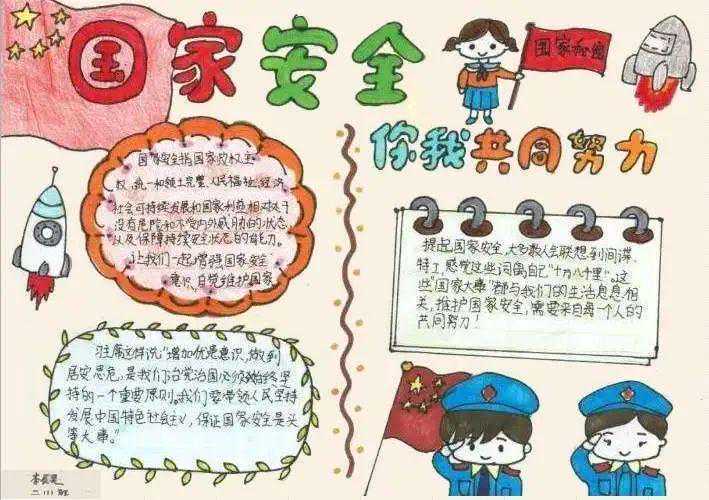 国家安全
你我共同努力
国家安全指国家政权主
权、统一和领土完整、人民福祉、经济
社会可持续发展和国家利益相对处于
没有危险和不受内外威胁的状态
以及保障持续安全状态的能力。
让我们一起增强国家安全
意识,自觉维护国家
提起国家安全,大多数人会联想到间谍、
特工,感觉这些词离自己“十万八千里”。这
些“国家大事”都与我们的生活息息相
关,维护国家安全,需要来自每一个人的
共同努力!
习主席这样说“增加忧患意识,做到
居安思危,是我们治党治国必须始终坚
持的一个重要原则。我们要带领人民坚持
发展中国特色社会主义,保证国家安全是头
等大事。”